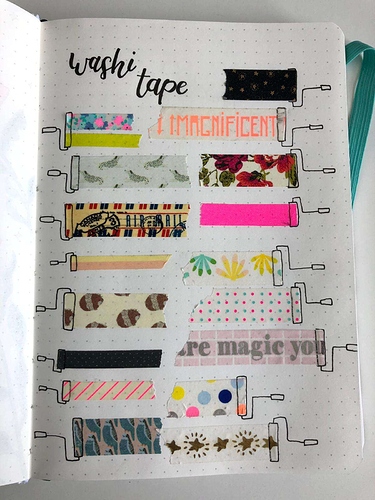 washi
tape
IMAGNIFICENT
AIR MAIL
are magic you